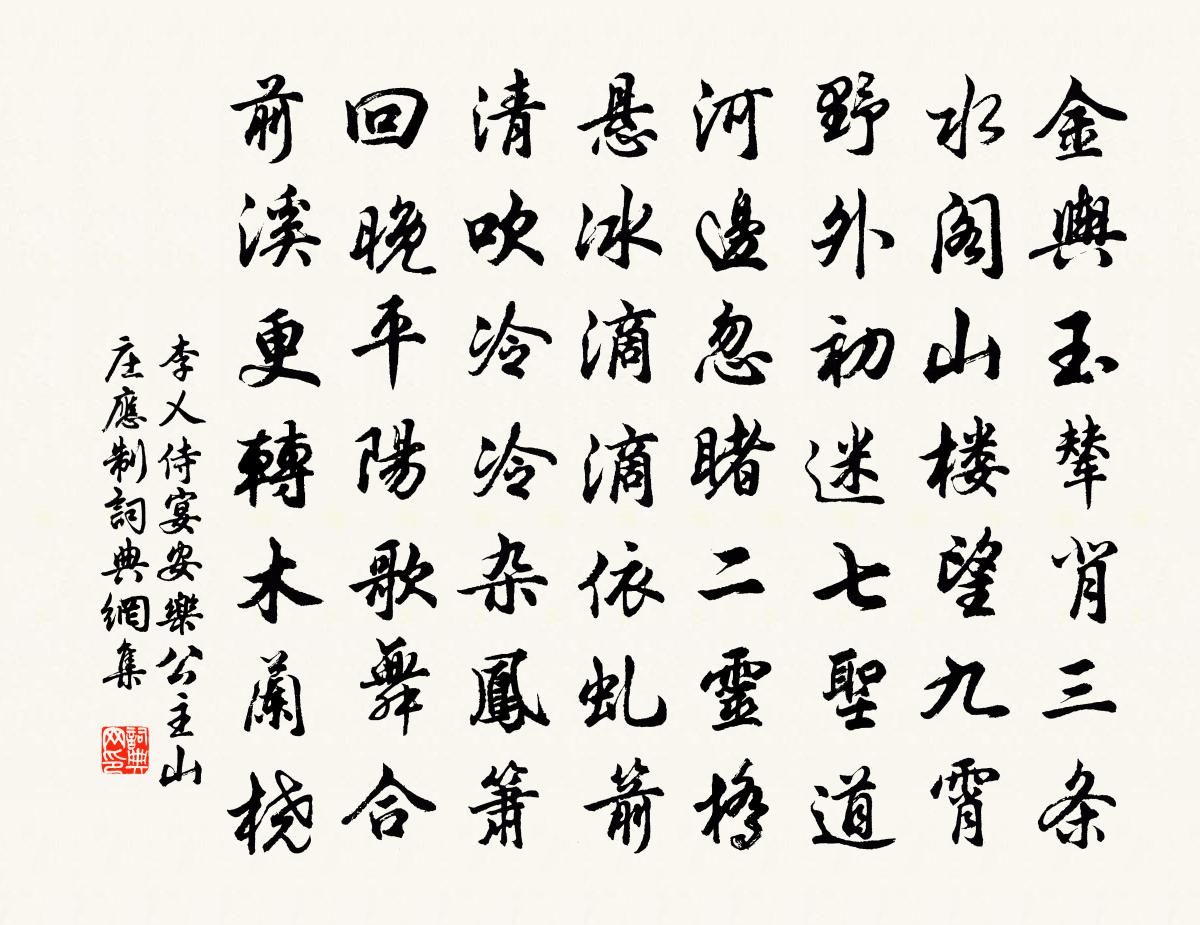 金輿玉輦背三条
水阁山楼望九霄
野外初迷七聖道
河邊忽睹二靈橋
悬冰滴滴依虬箭
清吹泠泠杂鳳箫
回晚平陽歌舞合
前溪更轉木蘭桡
李乂侍宴安樂公主山
庄應制詞典網集
詞典网印